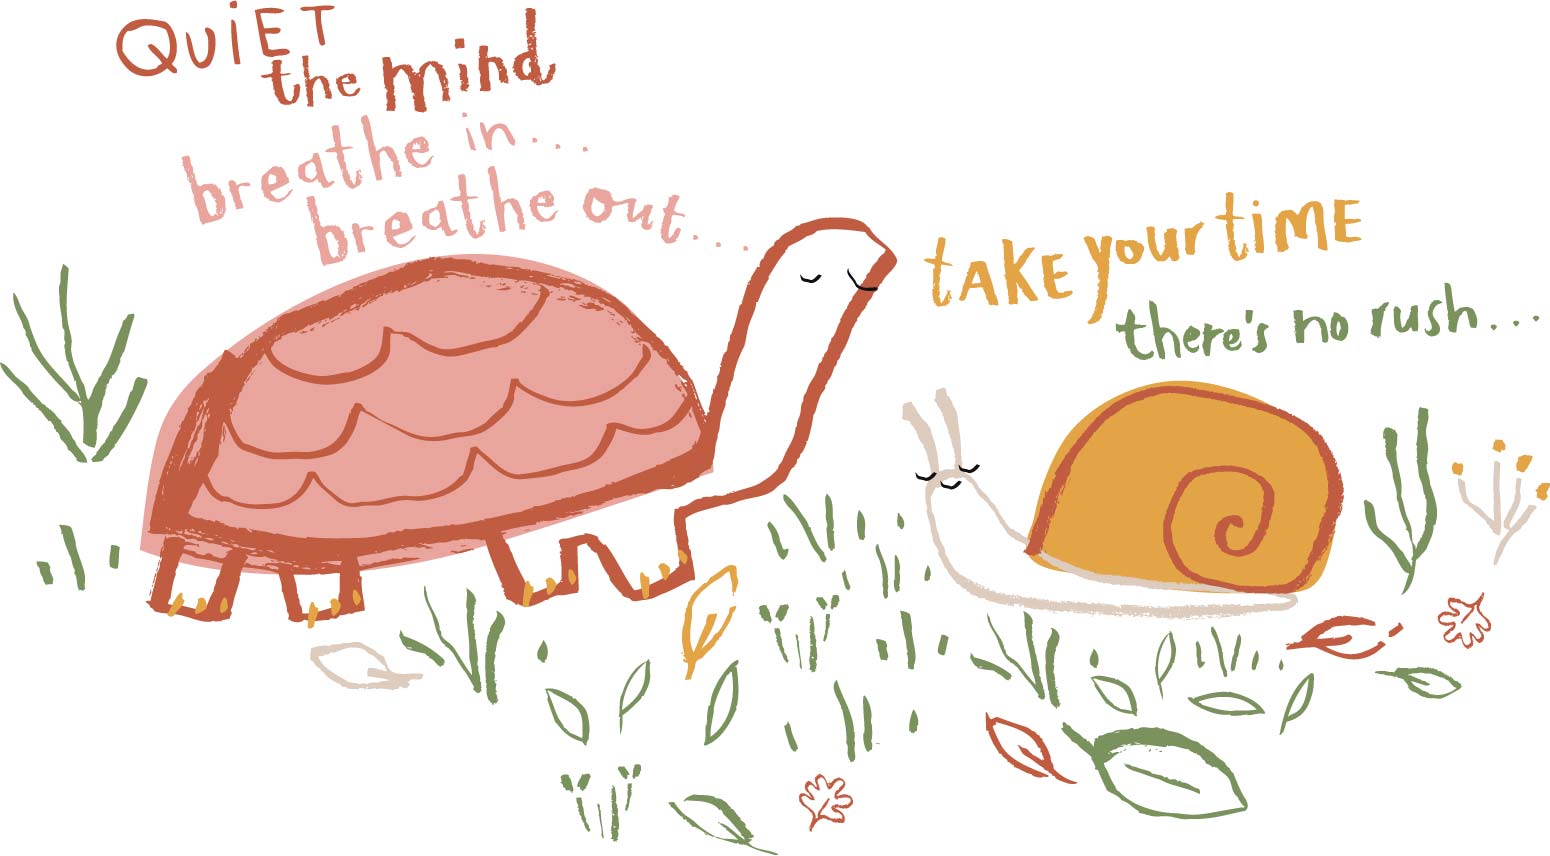 QUiET
the mind
breathe in...
breathe out...
tAKE your tiME
there's no rush...